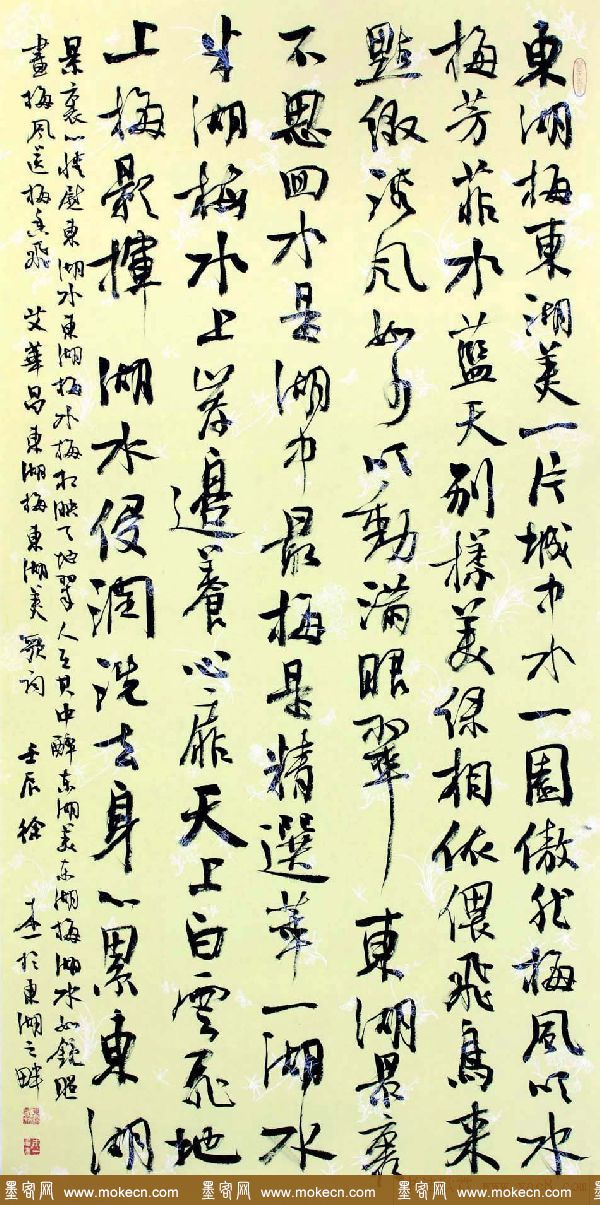 東湖梅東湖美一片城中水一園傲然梅風吹水
梅芳菲水藍天别樣美保相依偎飛鳥来
點缀清风如手吹動滿眼翠東湖景裏
不思回水是湖中最梅是精選華一湖水
半湖梅水上岸邊養心扉天上白雲飛地
上梅影揮湖水侵潤洗去身心累東湖
景裏心情慰東湖水東湖梅水梅相映天地翠人在其中醉东湖美东湖梅湖水如鏡照
畫梅风送梅香飛 艾華昌東湖梅東湖美歌詞 壬辰徐 於東湖之畔
墨客网 www.mokecn.com 墨客网 www.mokecn.com 墨客网 www.mokecn.com